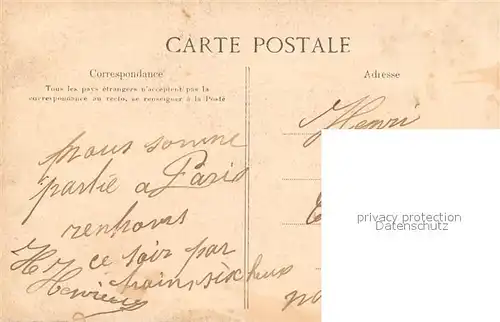 CARTE POSTALE
Correspondance
Tous les pays étrangers n'acceptent pas la
correspondance au recto, se renseigner à la Poste
Adresse
Henri
nous somme
partie a Paris
rentrons
ce soir par
train six heur
privacy protection
Datenschutz